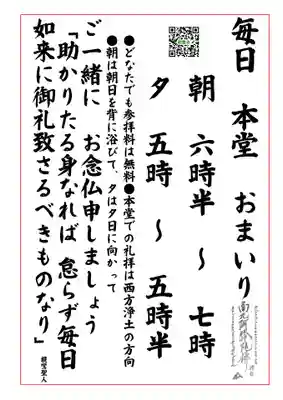 毎日 本堂 おまいり
朝 六時半 〜 七時
夕 五時 〜 五時半
●どなたでも参拝料は無料●本堂での礼拝は西方浄土の方向
●朝は朝日を背に浴びて、夕は夕日に向かって
ご一緒に お念仏申しましょう
「助かりたる身なれば 怠らず毎日
如来に御礼致さるべきものなり」